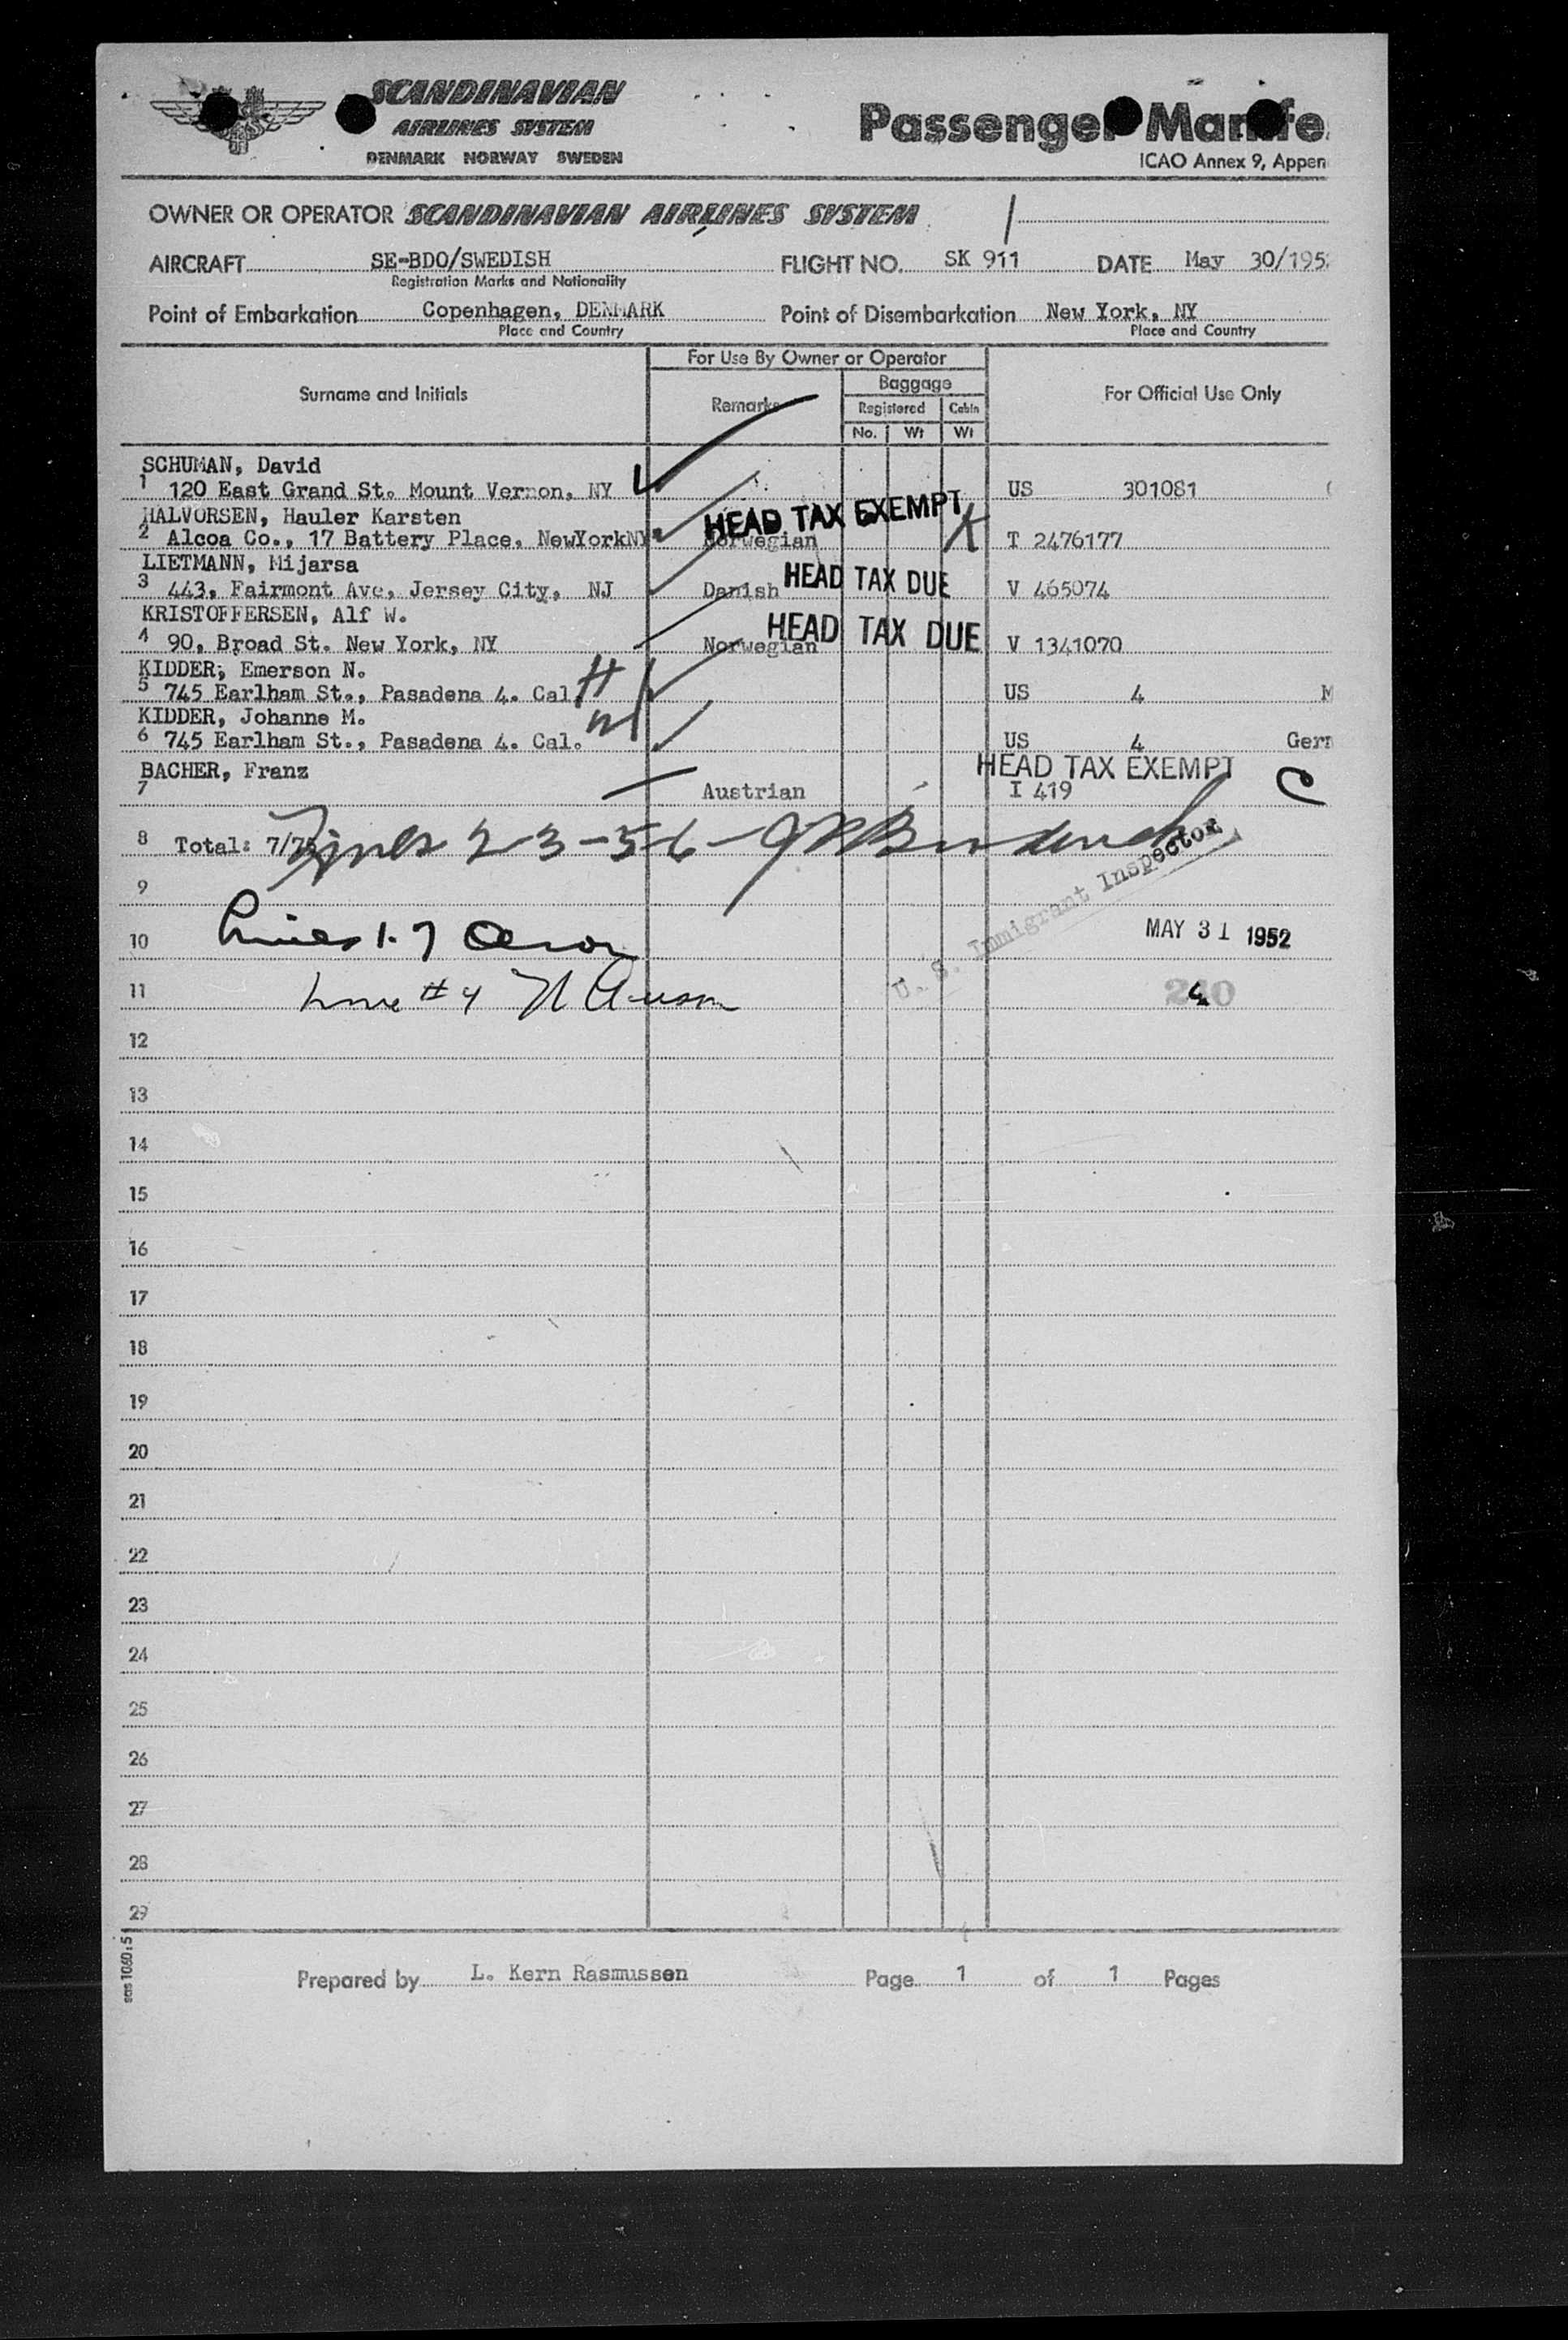 SCANDINAVIAN
AIRLINES SYSTEM
DENMARK NORWAY SWEDEN
Passenger Manife
ICAO Annex 9, Appen
OWNER OR OPERATOR SCANDINAVIAN AIRLINES SYSTEM
AIRCRAFT SE-BDO/SWEDISH FLIGHT NO. SK 911 DATE May 30/195
Registration Marks and Nationality
Point of Embarkation Copenhagen, DENMARK Point of Disembarkation New York, NY
Place and Country Place and Country
For Use By Owner or Operator
Surname and Initials Remarks Baggage For Official Use Only
Registered Cabin
No. Wt Wt
SCHUMAN, David
1 120 East Grand St. Mount Vernon, NY US 301081
HALVORSEN, Hauler Karsten HEAD TAX EXEMPT
2 Alcoa Co., 17 Battery Place, NewYorkNY Norwegian T 2476177
LIETMANN, Mijarsa HEAD TAX DUE
3 443, Fairmont Ave, Jersey City, NJ Danish V 465074
KRISTOFFERSEN, Alf W. HEAD TAX DUE
4 90, Broad St. New York, NY Norwegian V 1341070
KIDDER, Emerson N. H
5 745 Earlham St., Pasadena 4. Cal. US 4 M
KIDDER, Johanne M. W
6 745 Earlham St., Pasadena 4. Cal. US 4 Germ
BACHER, Franz HEAD TAX EXEMPT C
7 Austrian I 419
8 Total: 7/7 2-3-5-6
9
U. S. Immigrant Inspector
10 Lines 1. 7 MAY 31 1952
11 Line #4 240
12
13
14
15
16
17
18
19
20
21
22
23
24
25
26
27
28
29
sas 1060:5
Prepared by L. Kern Rasmussen Page 1 of 1 Pages